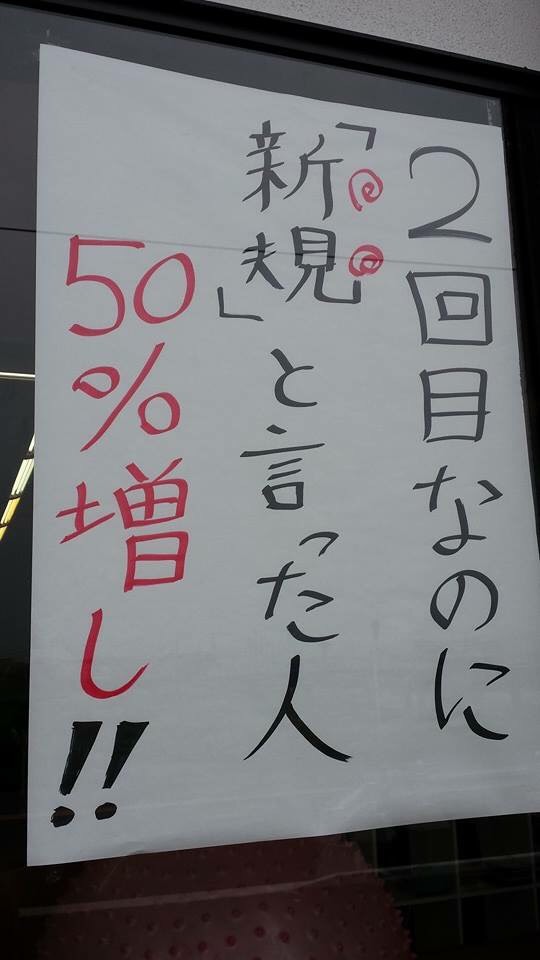 2回目なのに
「新規」と言った人
50%増し!!